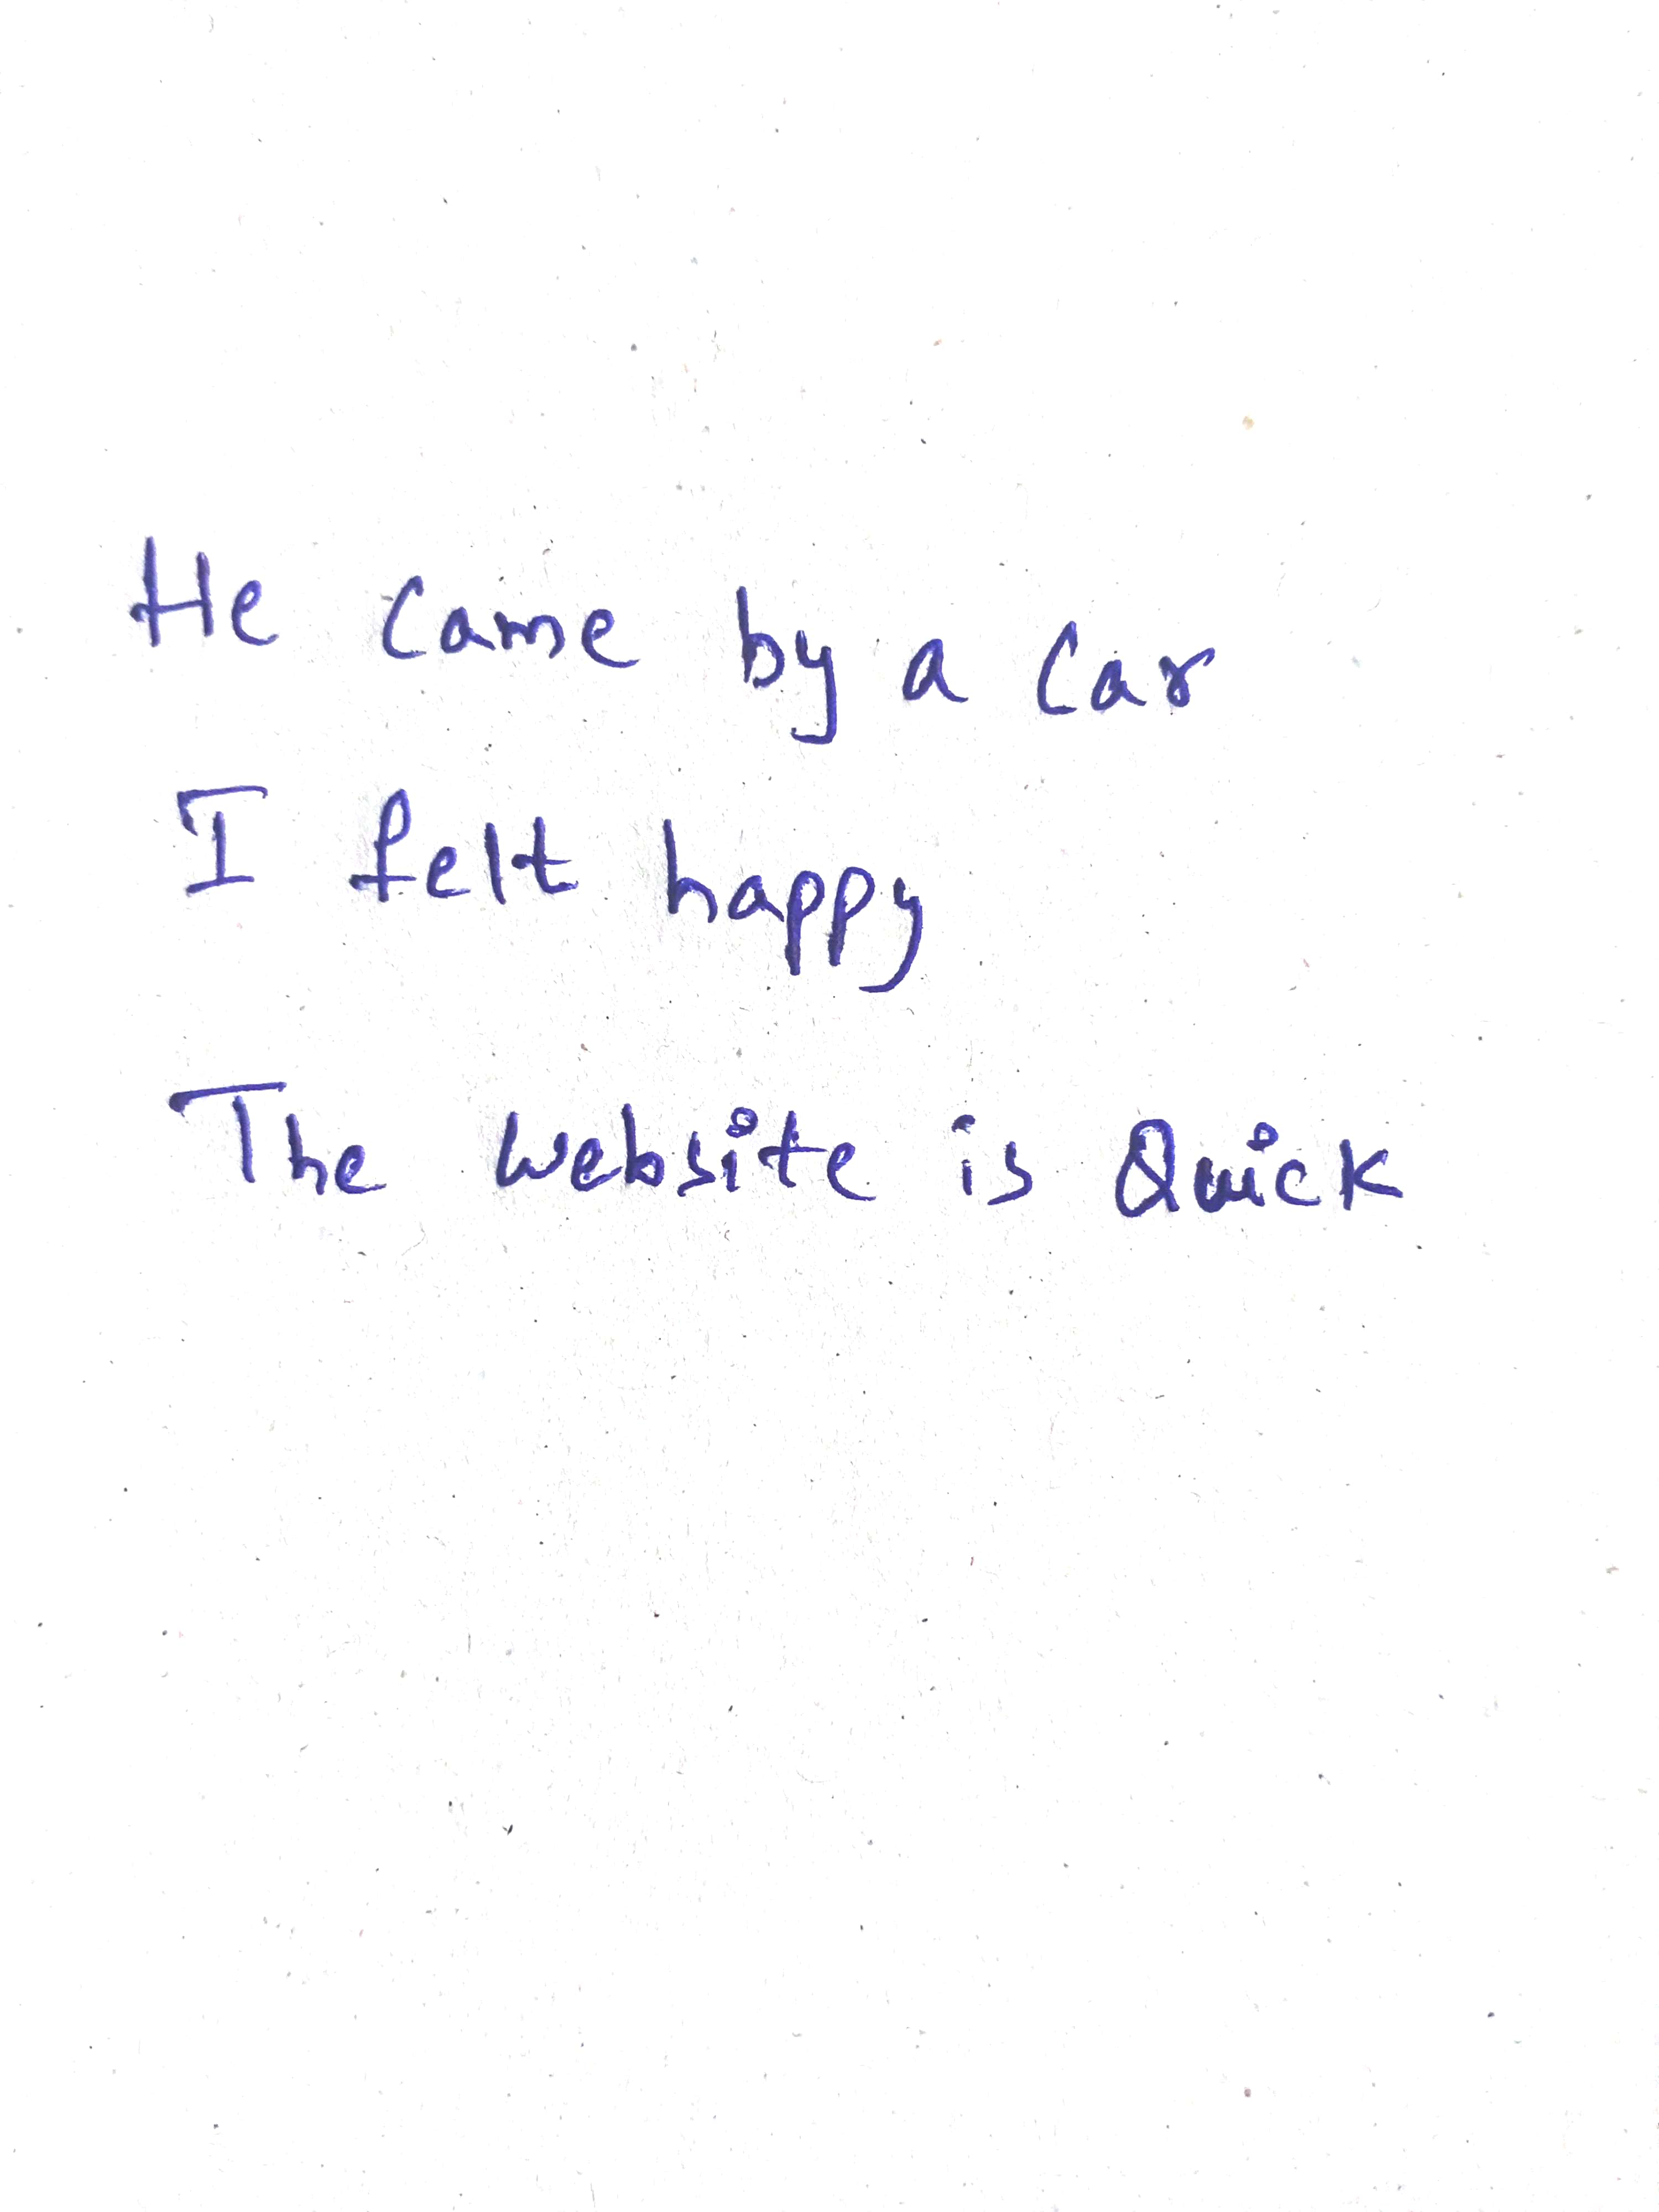 He came by a car
I felt happy
The website is Quick